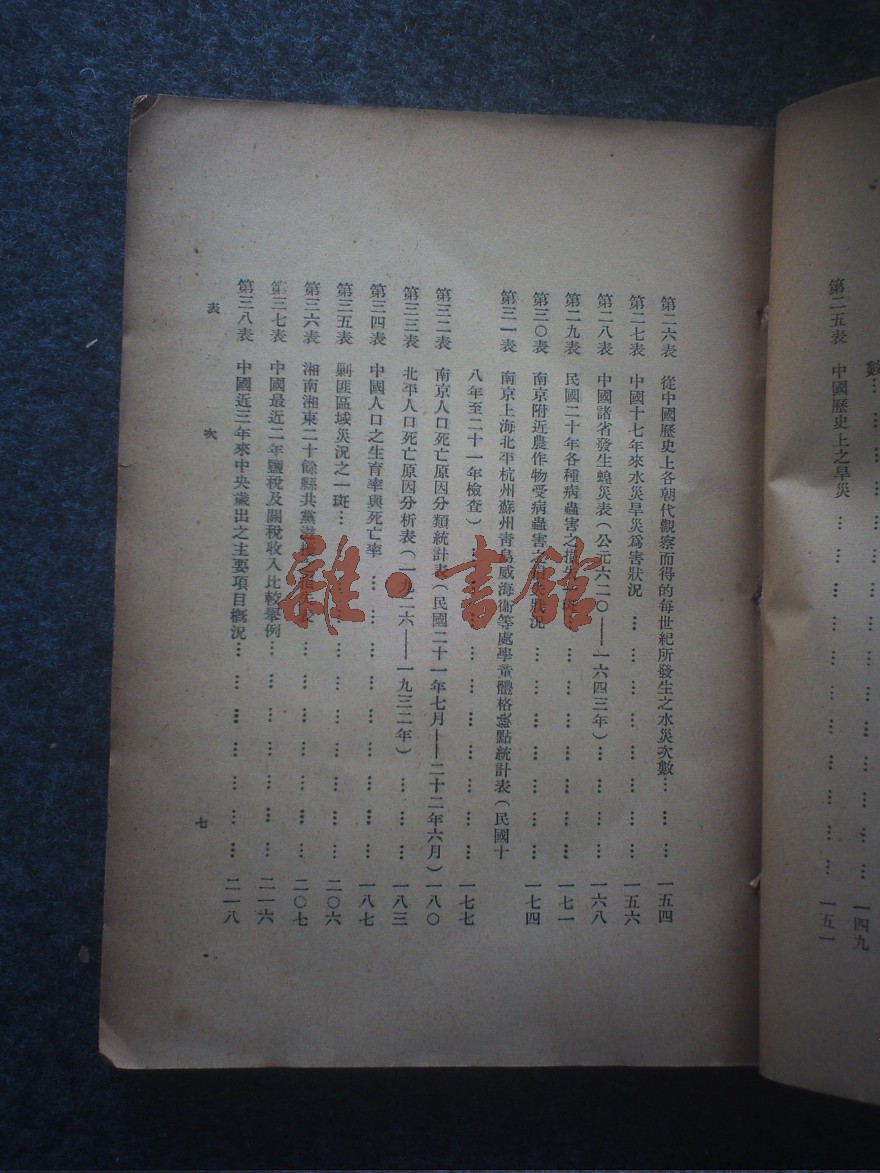 數… … … … … … … … 一四九
第二五表 中國歷史上之旱災 … … … … … … … 一五一
第二六表 從中國歷史上各朝代觀察而得的每世紀所發生之水災次數… … … 一五四
第二七表 中國十七年來水災旱災為害狀況 … … … … … … 一五六
第二八表 中國諸省發生蝗災表(公元六二〇——一六四三年)… … … 一六八
第二九表 民國二十年各種病蟲害之損失一斑… … … … … … 一七一
第三〇表 南京附近農作物受病蟲害之損失狀況 … … … … … … 一七四
第三一表 南京上海北平杭州蘇州青島威海衞等處學童體格缺點統計表(民國十
八年至二十一年檢查) … … … … … … … … 一七七
第三二表 南京人口死亡原因分類統計表(民國二十一年七月——二十二年六月) 一八〇
第三三表 北平人口死亡原因分析表(一九二六——一九三二年) … … 一八三
第三四表 中國人口之生育率與死亡率 … … … … … … … 一八七
第三五表 剿匪區域災況之一斑… … … … … … … … 二〇六
第三六表 湘南湘東二十餘縣共黨 … … … … … … 二〇七
第三七表 中國最近二年鹽稅及關稅收入比較舉例… … … … … … 二一六
第三八表 中國近三年來中央歲出之主要項目概況… … … … … … 二一八
表 次 七
雜·書館